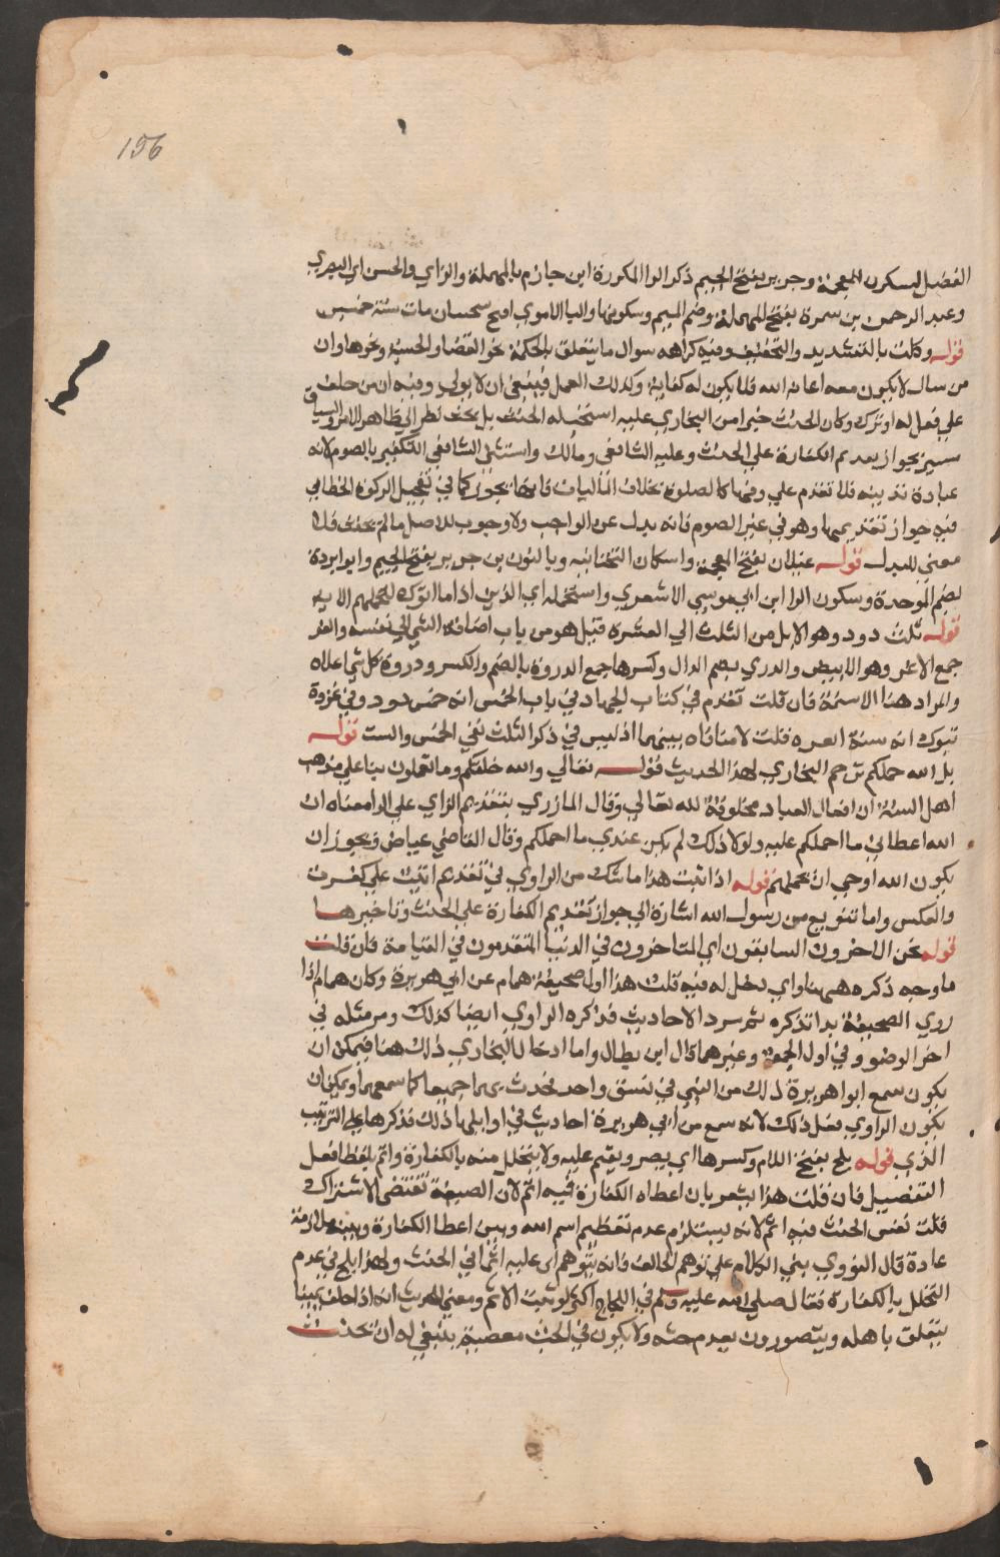 156
الفضل بسكون المعجمة وجرير بفتح الجيم ذكر الراء المكررة ابن حازم بالمهملة والزاي والحسن اي البصري
وعبد الرحمن بن سمرة بفتح المهملة وضم الميم وسكونها والبا الاموي افتح سجستان مات سنة خمسين
قوله وكلت بالتشديد والتخفيف وفيه كراهة سوال ما يتعلق بالحكمة نحو القضا والحسبة ونحوها وان
من سال لا يكون معه اعانه الله فلا يكون له كفاية ولذلك العمل فينبغي ان لا يولي وفيه ان من حلف
علي فعل له او ترك وكان الحنث خيرا من التمادي عليه استحب له الحنث بل يجب نظر الي ظاهر الامر والسياق
سير يجواز بعد تم الكفارة علي الحنث وعليه الشافعي ومالك واستثنى الشافعي التكفير بالصوم لانه
عبادة بدنية فلا تقدم علي وقتها كالصلوة بخلاف الماليات فانها يجوز كما في تعجيل الزكوة الخطابي
فيه جواز تقديمها وهو في غير الصوم فانه بدل عن الواجب ولا وجوب للاصل ما لم يحنث فلا
معني للبدل قوله غيلان بفتح المعجمة واسكان التحتانيه وبالنون بن جرير بفتح الجيم وابو بردة
بضم الموحدة وسكون الرا ابن ابي موسي الاشعري واستحمله اي الذين اذا ما اتوك لتحملهم الايه
قوله ثلث ذود وهو الابل من الثلث الي العشرة قيل هو من باب اضافة الشي الي نفسه والغر
جمع الاغر وهو الابيض والذري بضم الذال وكسرها جمع الذروة بالضم والكسر وذروة كل شي اعلاه
والمراد هنا الاسنمة فان قلت تقدم في كتاب الجهاد في باب الخمس انه خمس ذود وفي غزوة
تبوك انه ستة ابعره قلت لا منافاه بينهما اذ ليس في ذكر الثلث نفي الخمس والست قوله
بل الله حملكم ترجم البخاري لهذا الحديث قوله تعالي والله خلقكم وما تعملون بنا علي مذهب
اهل السنة ان افعال العباد مخلوقة لله تعالي وقال المازري بتقديم الزاي علي الرا معناه ان
الله اعطاني ما احملكم عليه ولولا ذلك لم يكن عندي ما احملكم وقال القاضي عياض ويجوز ان
يكون الله اوحي ان يحملهم قوله اذا اتيت هذا ما شك من الراوي في تقديم اتيت علي كفرت
والعكس واما تنويع من رسول الله اشارة الي جواز تقديم الكفارة علي الحنث وتاخيرها
قوله نحن الاخرون السابقون اي المتاخرون في الدنيا المتقدمون في القيامة فان قلت
ما وجه ذكره ههنا واي دخل له فيه قلت هذا اول صحيفة همام عن ابي هريرة وكان همام اذا
روي الصحيفة بدا بذكره ثم سرد الاحاديث فذكره الراوي ايضا كذلك ومر مثله في
اخر الوضو وفي اول الجمعة وغيرهما قال ابن بطال واما ادخال البخاري ذلك هنا فيمكن ان
يكون سمع ابو هريرة ذلك من النبي في نسق واحد فحدث بهما جميعا كما سمعهما ويمكن ان
يكون الراوي فعل ذلك لانه سمع من ابي هريرة احاديث في اوايلها ذلك فذكرها علي الترتيب
الذي قوله يلج بفتح اللام وكسرها اي يصر ويقيم عليه ولا يتحلل منه بالكفارة واثم بلفظ افعل
التفضيل فان قلت هذا يشعر بان اعطاه الكفارة فيه اثم لان الصيغة تقتضي الاشتراك
قلت نفس الحنث فيه اثم لانه يستلزم عدم تعظيم اسم الله وبين اعطا الكفارة وبينه ملازمة
عادة قال النووي بني الكلام علي توهم الحالف فانه يتوهم ان عليه اثما في الحنث ولهذا يلج في عدم
التحلل بالكفارة فقال صلي الله عليه وسلم في اللجاج اكثر لو ثبت الاثم ومعني الحديث انه اذا حلف يمينا
يتعلق باهله ويتضررون بعدم حنثه ولا يكون في الحنث معصية ينبغي له ان يحنث